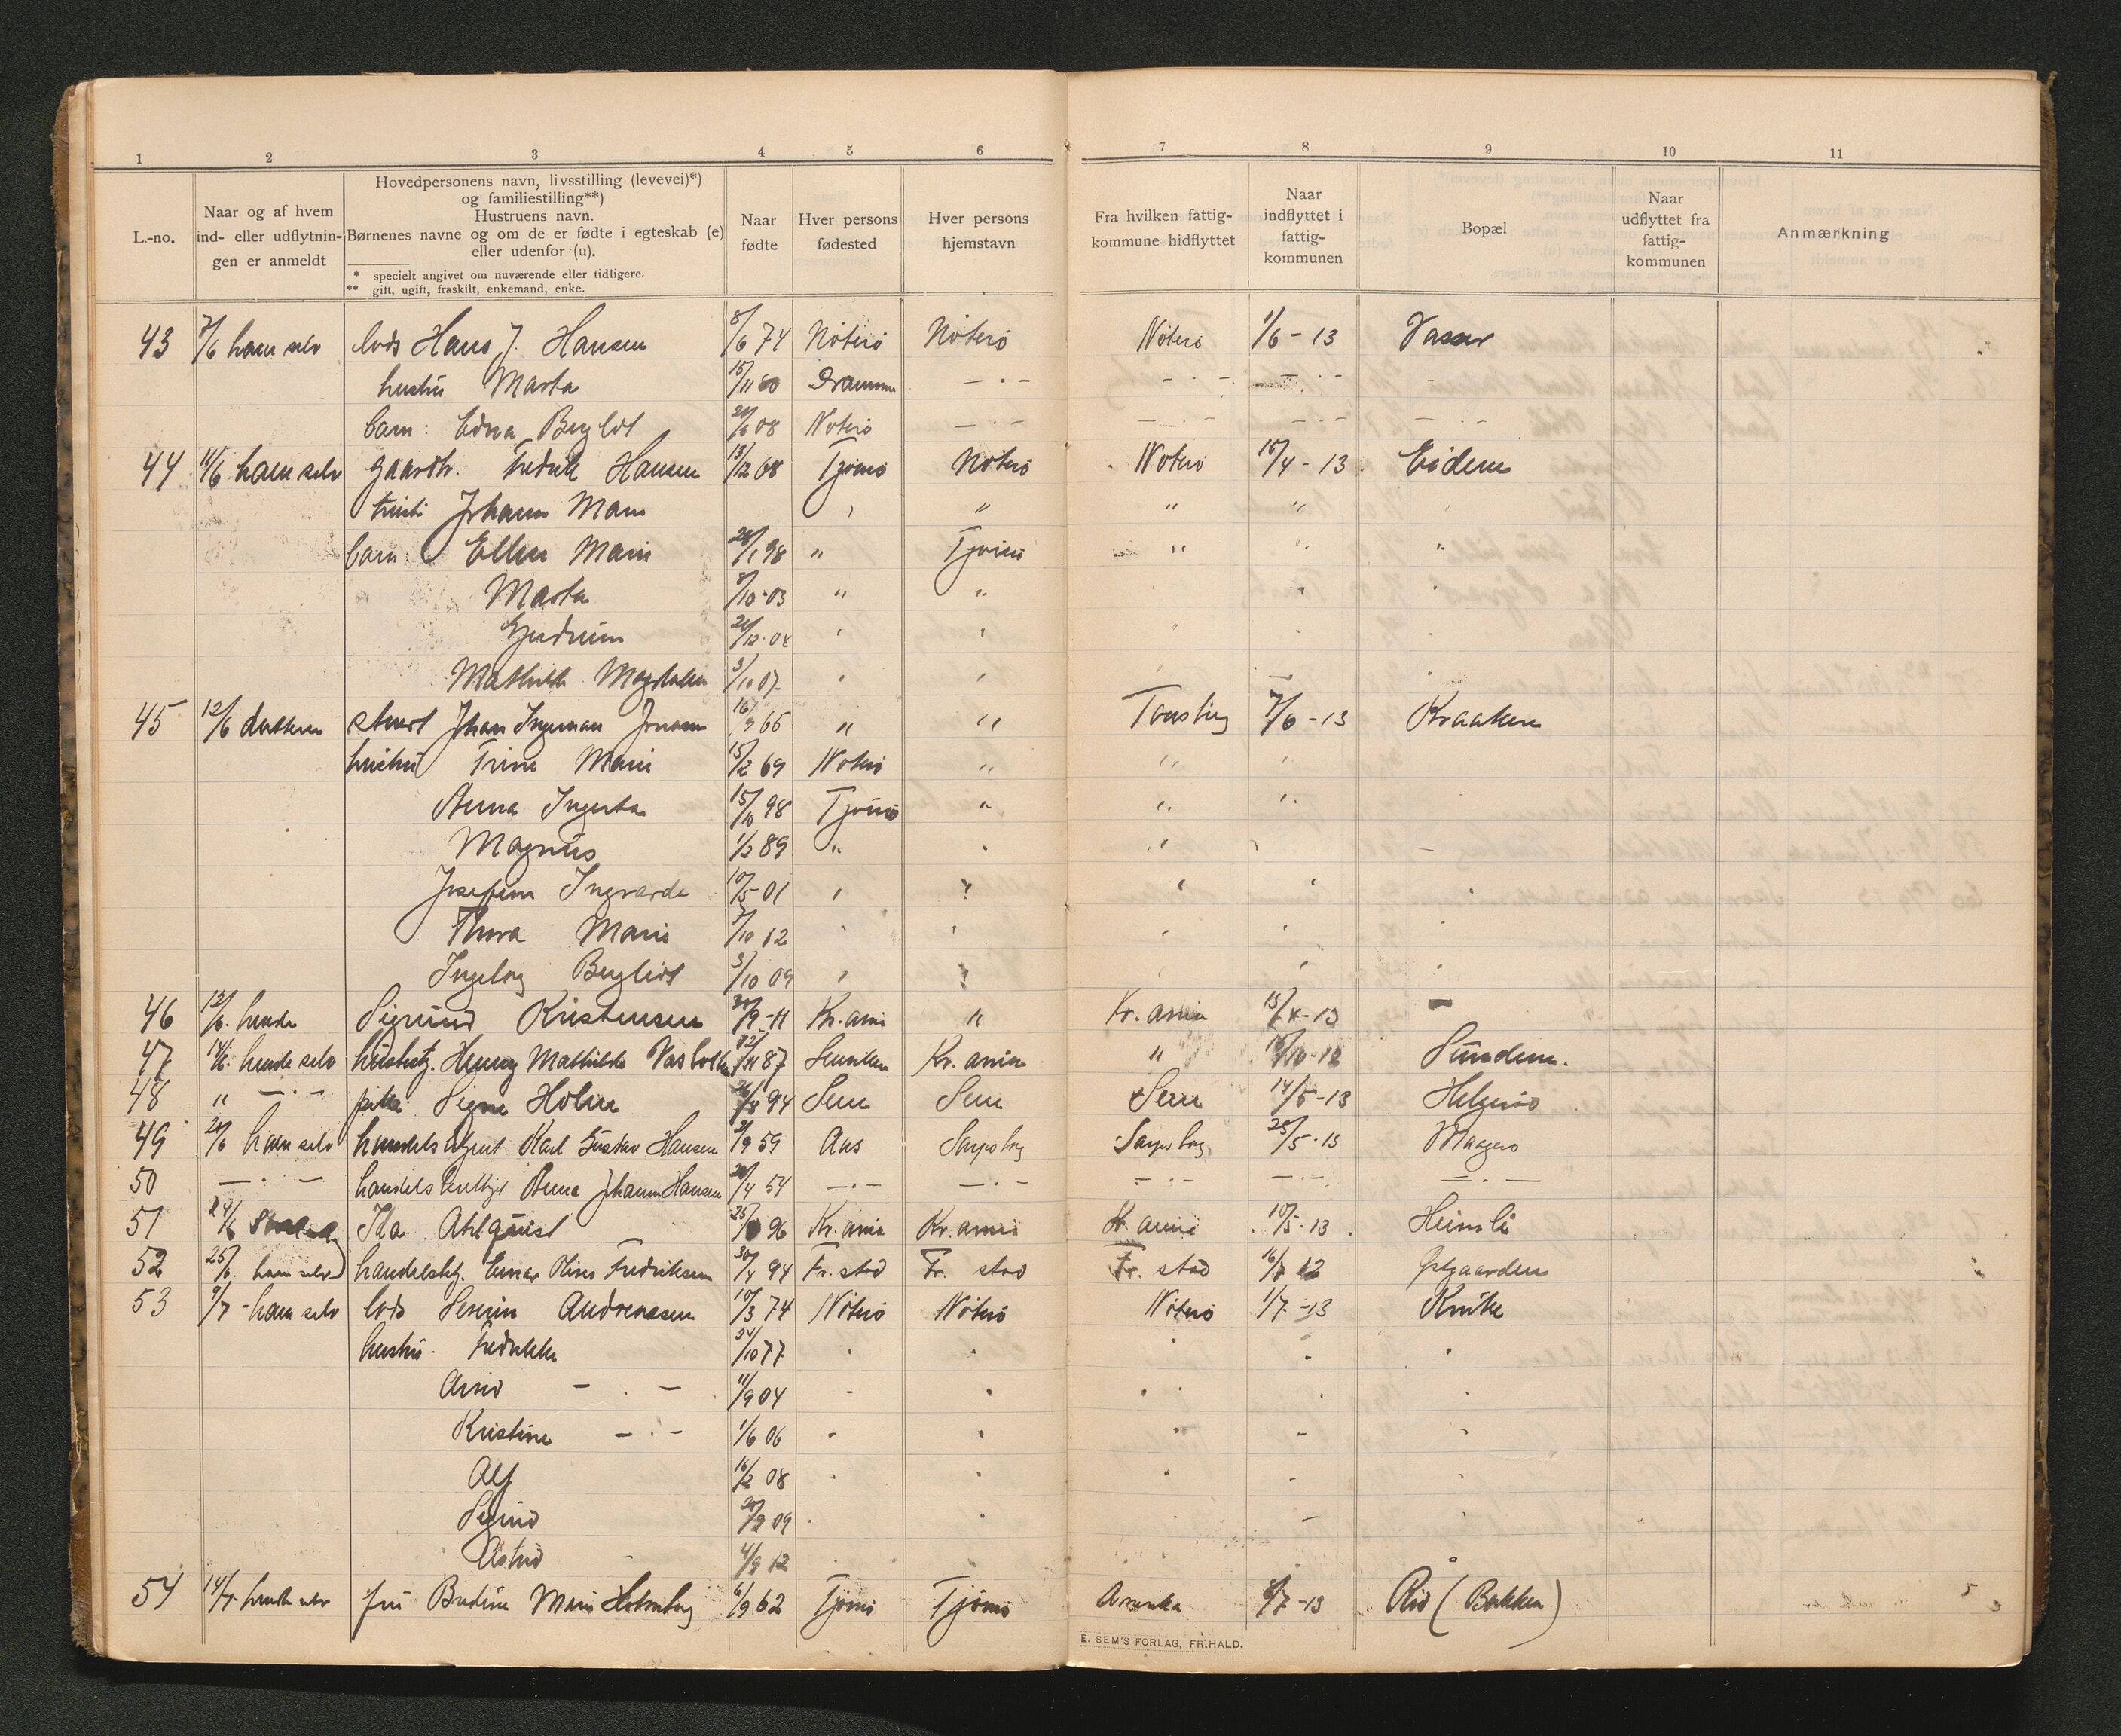 1 2 3 4 5 6 7 8 9 10 11
L.-no.
Naar og af hvem
ind- eller udflytnin-
gen er anmeldt
Hovedpersonens navn, livsstilling (levevei)*)
og familiestilling**)
Hustruens navn.
Børnenes navne og om de er fødte i egteskab (e)
eller udenfor (u).
* specielt angivet om nuværende eller tidligere.
** gift, ugift, fraskilt, enkemand, enke.
Naar
fødte
Hver persons
fødested
Hver persons
hjemstavn
Fra hvilken fattig-
kommune hidflyttet
Naar
indflyttet i
fattig-
kommunen
Bopæl
Naar
udflyttet fra
fattig-
kommunen
Anmærkning
43 7/6 ham selv lods Hans J. Hansen 8/6 74 Nøterø Nøterø Nøterø 1/6 - 13 Vasser
hustru Marta 15/11 Drammen — · — — · — — · —
barn: Edna Berglot 6 08 Nøterø — · — — · — — · —
44 11/6 ham selv gaardbr. Fredrik Hansen 13/12 68 Tjømø Nøterø Nøterø 15/4 - 13 Eidem
Johanne " " "
barn: Ellen Marie 1 98 " Tjømø " " "
Marta 8/10 03 " "
Gudrun 12
Mathilde Magdalen 3/10 07
45 12/6 datteren stuert Johan Ingeman 16/9 66 " " Tønsberg 7/6 - 13 Kraaken
hustru Trine Marie 15/2 69 Nøterø " " "
Anna 15/10 98 Tjømø " " "
Magnus 1/2 89 "
Josefine Ingvarda 10/5 01
Thora Marie 7/10 12
Ingeborg Bergliot 3/10 09
46 12/6 hende Sigrund Kristensen 9 - 11 Kr.ania " Kr. ania 15/4 - 13 —
47 14/6 hende selv Henny Mathilde 11 87 Kr. ania " 10 - 12 Sundene.
48 " — · — pike Signe Holm 8 94 Sem Sem Sem 14/5 - 13 Helgerø
49 6 ham selv handelsagent Karl Gustav Hansen 9 59 Aas Sarpsborg Sarpsborg 25/5 - 13 Magerø
50 — · — Anna Johanne Hansen 4 54 — · — — · — — · — — · — — · —
51 24/6 Ida Ahlquist 25 96 Kr. ania Kr. ania Kr. ania 10/5 - 13 Heimli
52 25/6 ham selv handelsbtj. Einar Fredriksen 30/4 94 Fr. stad Fr. stad Fr. stad 16 12 Østgaarden
53 7 - ham selv lods Severin Andreassen 10/3 74 Nøterø Nøterø Nøterø 1/7 - 13 Knike
hustru Fredrikke 24/10 77
— · — 11/9 04
Kristine — · — 1/6 06
Alf 16/2 08
Sigurd 09
Astrid 4/9 12
54 14/7 hende selv fru Bredine Marie Holmberg 6/9 62 Tjømø Tjømø Amerika 7 - 13 Rød (Bakken)
E. SEM'S FORLAG, FR.HALD.